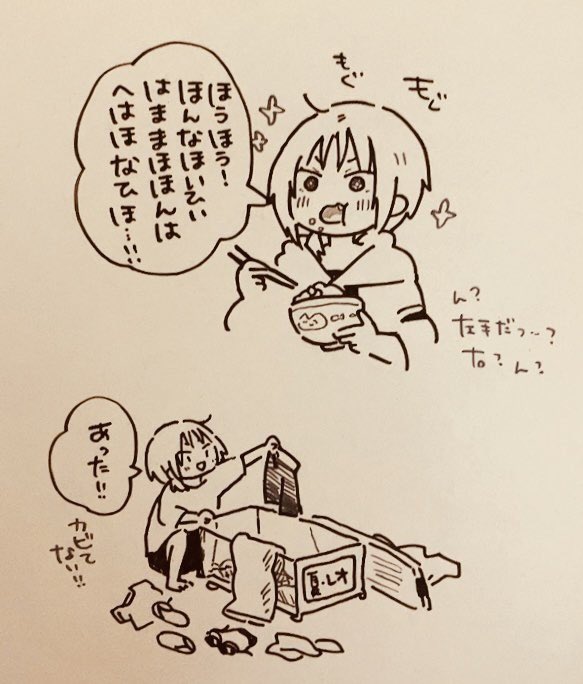 もぐ
もぐ
ほうほう!
ほんなほいひい
はままほほんは
へはほなひほ…!!
ん?
左手だっ~?
右? ん?
あった!!
カビて
ない!!
夏・レオ